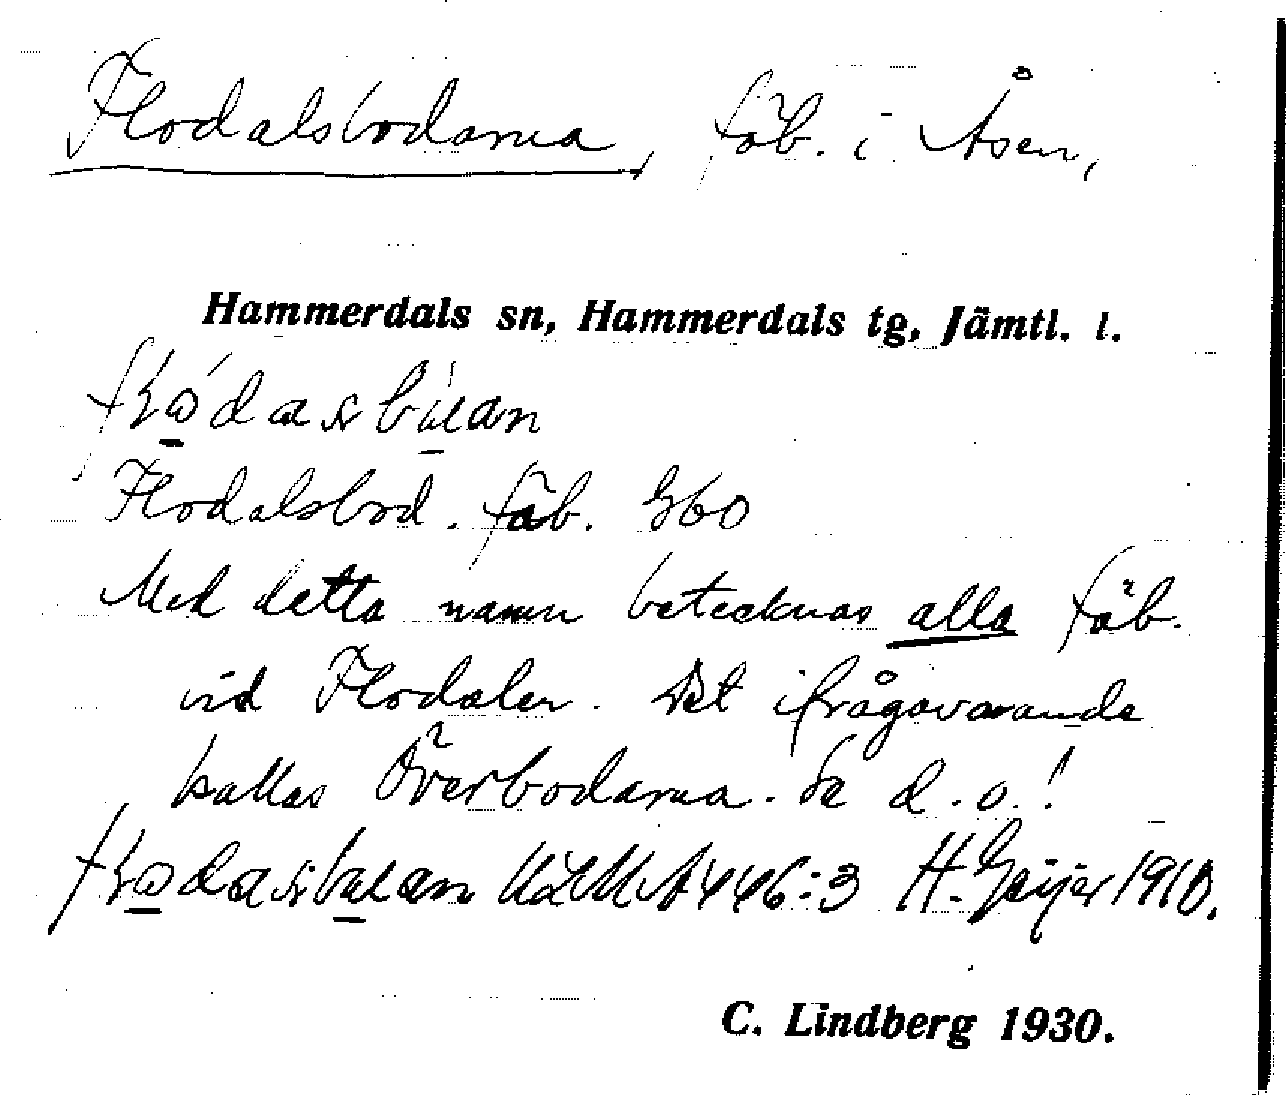 Flodalsbodarna, fäb. i Åsen,
Hammerdals sn, Hammerdals tg, Jämtl. l.
Flodalsbod. fäb. G60
Med detta namn betecknas alla fäb.
vid Flodalen. Det ifrågavarande
kallas Överbodarna. Se d. o.!
ULMA 446:3 H. Geijer 1910.
C. Lindberg 1930.